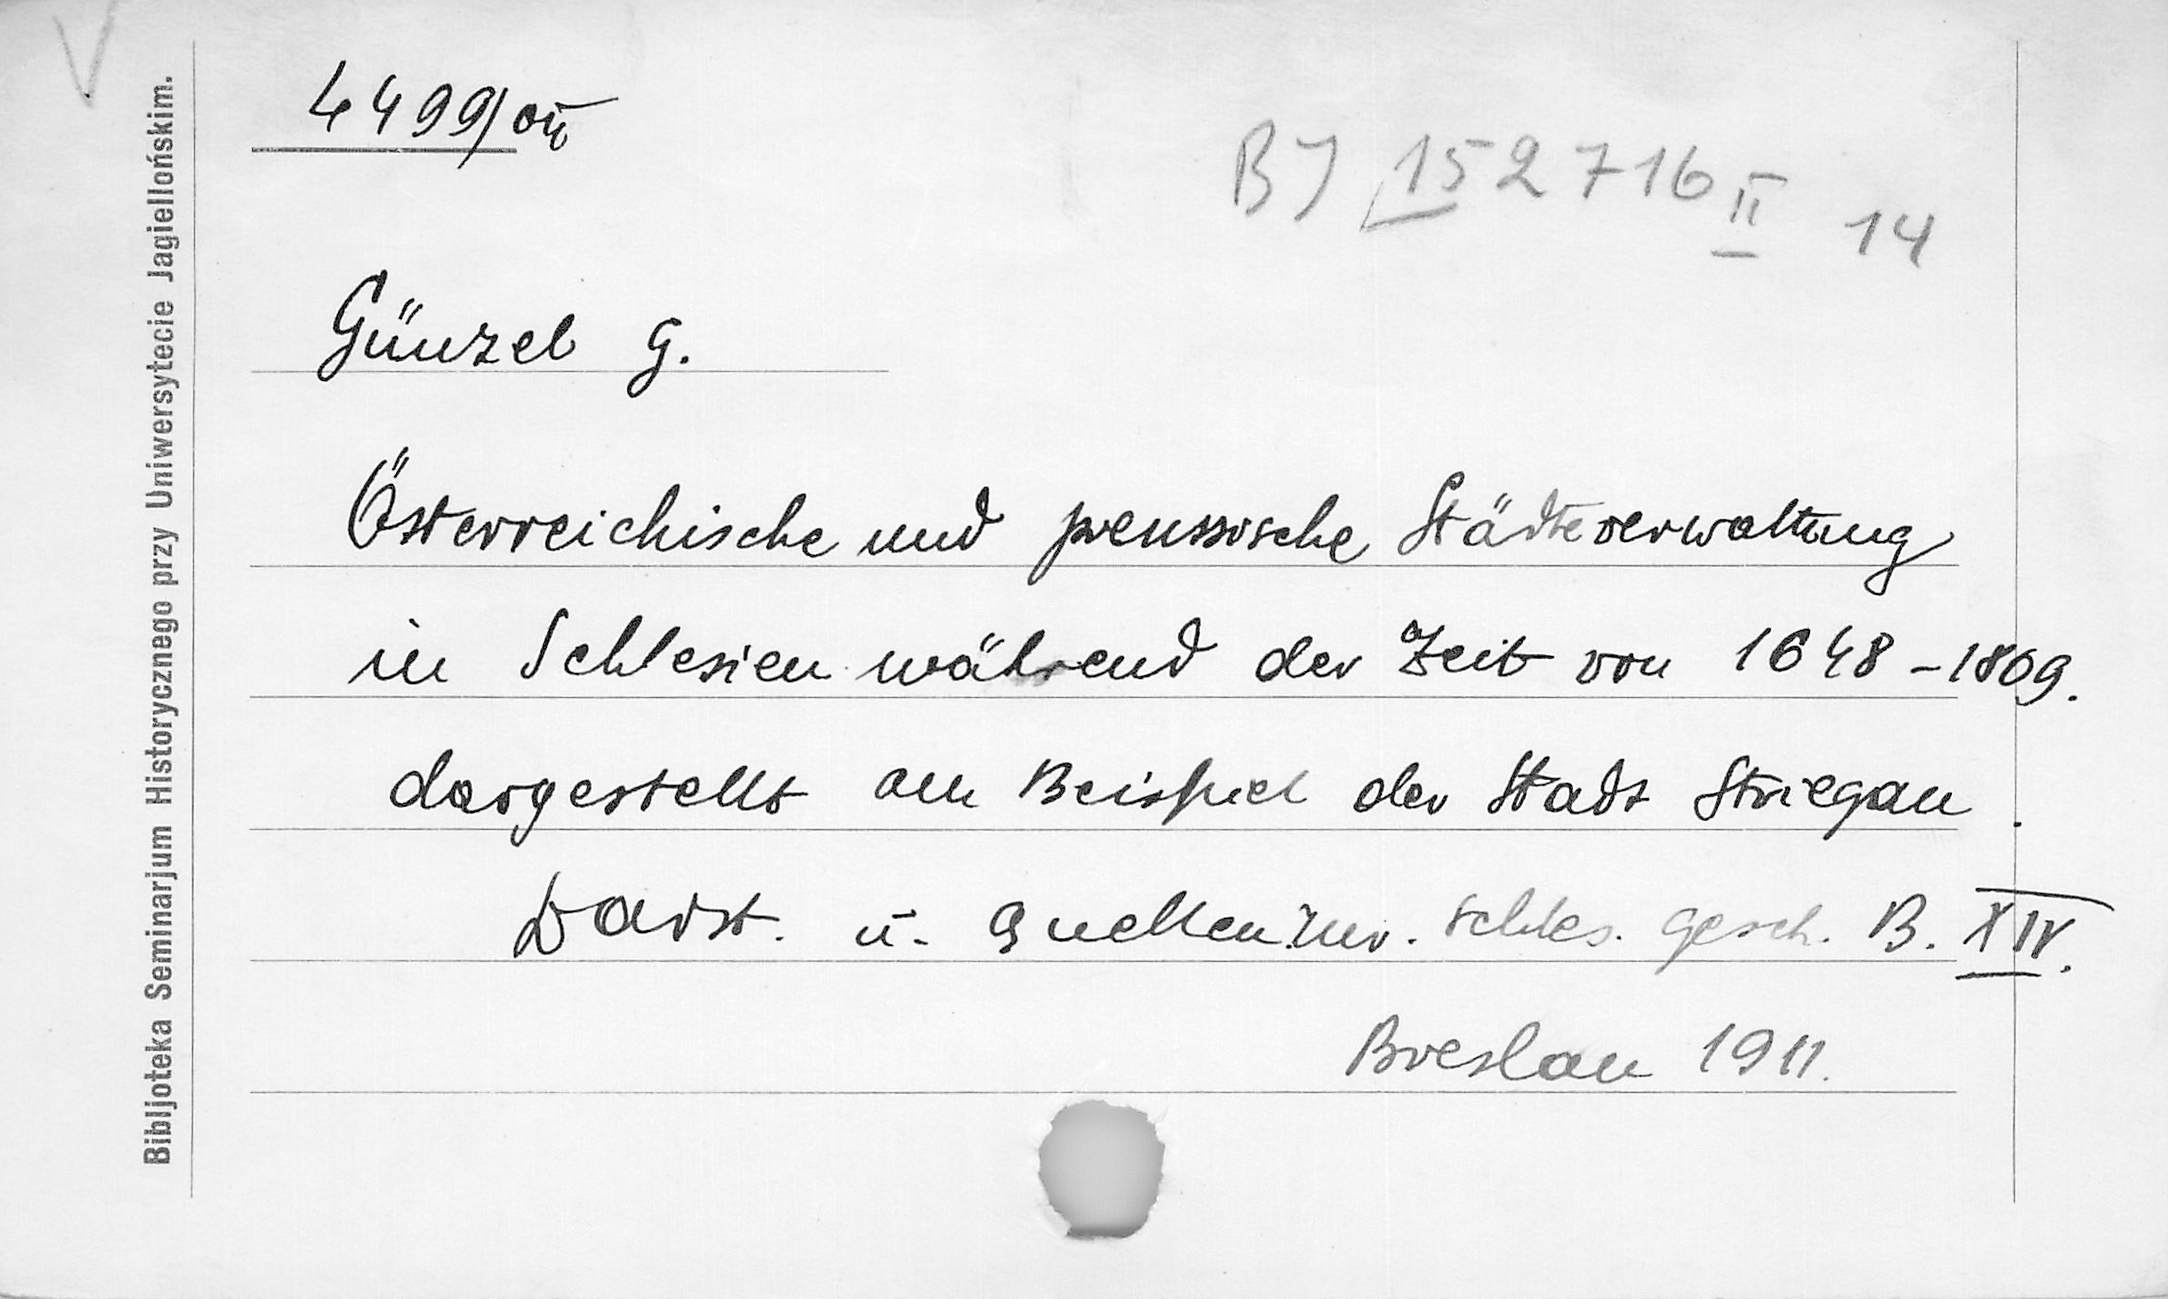 V
4499/
BJ 152716 II 14
Günzel G.
Österreichische und preussische Städteverwaltung
in Schlesien während der Zeit von 1648-1809.
dargestellt am Beispiel der Stadt Striegau.
Darst. u. Quellen zur. schles. gesch. B. XIV.
Breslau 1911.
Bibljoteka Seminarjum Historycznego przy Uniwersytecie Jagiellońskim.